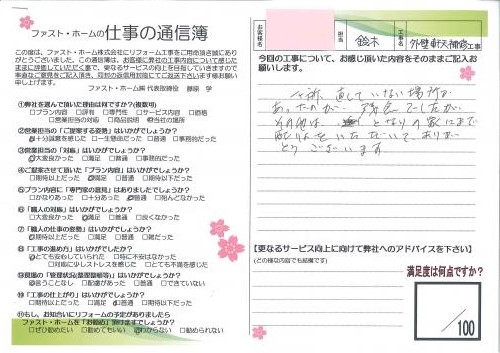 ファスト・ホームの仕事の通信簿
この度は、ファスト・ホーム株式会社にリフォーム工事をご用命頂き誠にあり
がとうございました。この通信簿は、お客様に弊社の工事内容について感じた
ままに評価していただく事で、更なるサービスの向上を目指していきますので
率直なご意見をご記入頂き、同封の返信用封筒にてご返送下さいます様お願い
申し上げます。
ファスト・ホーム㈱ 代表取締役 藤原 学
①弊社を選んで頂いた理由は何ですか?(複数可)
□プラン内容 □評判 □専門性 □サービス内容 □価格
□営業担当の対応 □商品説明 □会社の場所
②営業担当の「ご提案する姿勢」はいかがでしょうか?
□十分誠意を感じた □一生懸命だった □普通 □事務的だった
③営業担当の「対応」はいかがでしょうか?
□大変良かった □満足 □普通 □事務的だった
④ご提案させて頂いた「プラン内容」はいかがでしょうか?
□期待以上だった □満足 □普通 □期待以下だった
⑤プラン内容に「専門家の意見」はありましたでしょうか?
□かなりあった □十分あった □普通 □殆んどなかった
⑥「職人の対応」はいかがでしょうか?
□大変良かった □満足 □普通 □良くなかった
⑦「職人の仕事の姿勢」はいかがでしょうか?
□期待以上だった □満足 □普通 □雑だった
⑧「工事の進め方」はいかがでしょうか?
□とても安心していられた □特に不安はなかった
□対応に少しストレスを感じた □とても不満を感じた
⑨現場の「管理状況(整理整頓等)」はいかがでしょうか?
□言うことなし □配慮があった □普通 □できていない
⑩「工事の仕上がり」はいかがでしょうか?
□期待以上だった □満足 □普通 □期待以下だった
⑪もし、お知合いにリフォームの予定がありましたら
ファスト・ホームを「お勧め」頂けますでしょうか?
□ぜひ勧めたい □勧めてもいい □わからない □勧められない
お客様名
担当
鈴木
工事名
外壁軒天補修工事
今回の工事について、お感じ頂いた内容をそのままご記入お
願いします。
一ヶ所、直していない場所が
あったのが 残念でしたが
その他は となりの家にまで
配りょをいただいて、ありが
とうございます
【更なるサービス向上に向けて弊社へのアドバイスを下さい】
(どの様な内容でも結構です)
満足度は何点ですか?
/100